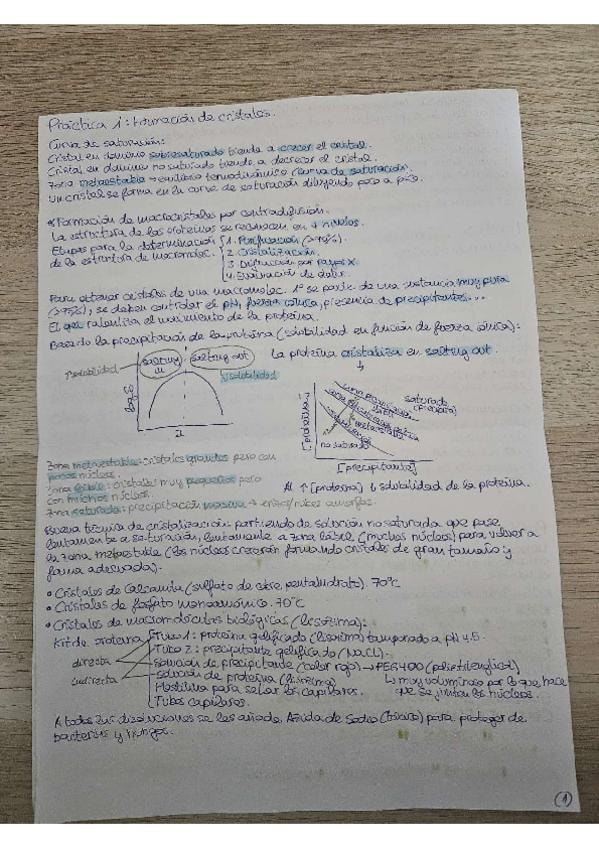 Práctica 1: Formación de cristales.
Curva de saturación:
Cristal en dominio sobresaturado tiende a crecer el cristal.
Cristal en dominio no saturado tiende a decrecer el cristal.
Zona metaestable → equilibrio termodinámico (curva de saturación).
Un cristal se forma en la curva de saturación diluyendo poco a poco.
* Formación de macrocristales por contradifusión.
La estructura de las proteínas se reconocen en 4 niveles.
Etapas para la determinación de la estructura de macromoléc.
1. Purificación (>95%).
2. Cristalización.
3. Difracción por rayos X.
4. Evaluación de datos.
Para obtener cristales de una macromoléc. 1º se parte de una sustancia muy pura
(>95%), se deben controlar el pH, fuerza iónica, presencia de precipitantes...
El gel ralentiza el movimiento de la proteína.
Basado en la precipitación de la proteína (solubilidad en función de fuerza iónica):
↑solubilidad
salting in
salting out
↓solubilidad
La proteína cristaliza en salting out.
[proteína]
saturada
metaestable
no saturado
[precipitante]
Al ↑ [proteína] ↓ solubilidad de la proteína.
Zona metaestable: cristales grandes pero con
pocos núcleos.
Zona lábil: cristales muy pequeños pero
con muchos núcleos.
Zona saturada: precipitación masiva →
amorfos.
Buena técnica de cristalización: partiendo de solución no saturada que pase
lentamente a saturación, lentamente a zona lábil (muchos núcleos) para volver a
la zona metaestable (los núcleos crecerán formando cristales de gran tamaño y
forma adecuada).
• Cristales de Calcantita (sulfato de cobre pentahidratado). 70ºC
• Cristales de fosfato monoamónico. 70ºC
• Cristales de macromoléculas biológicas (lisozima):
Kit de proteína
directa
indirecta
Tubo 1: proteína gelificada (lisozima) tamponado a pH 4.5.
Tubo 2: precipitante gelificado (NaCl).
Solución de precipitante (color rojo) → PEG 400 (polietilenglicol)
↳ muy voluminoso por lo que hace
que se junten los núcleos.
Solución de proteína (lisozima)
Plastilina para sellar los capilares.
Tubos capilares.
A todas las disoluciones se les añade Azida de Sodio (tóxico) para proteger de
bacterias y hongos.
1